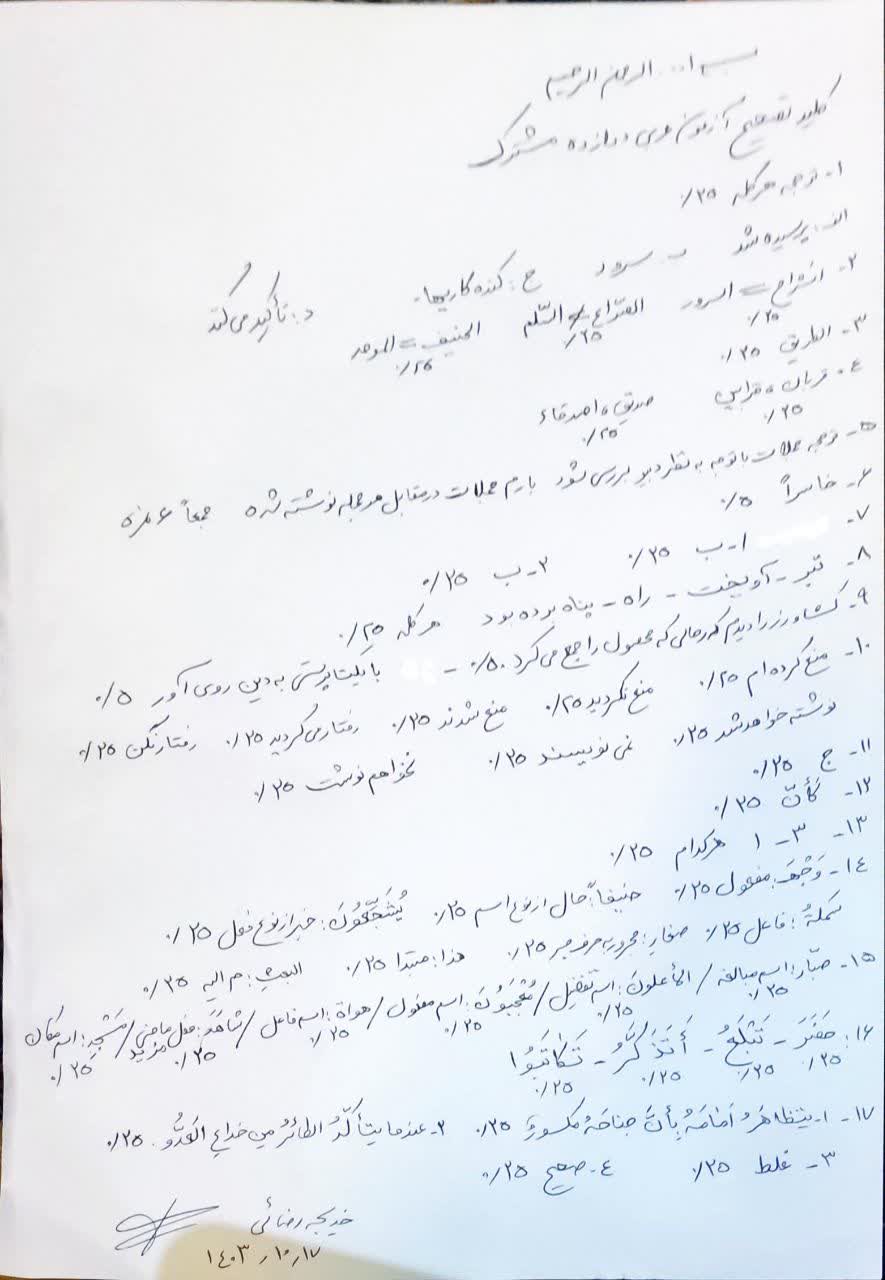 بسم الله الرحمن الرحیم
کلید تصحیح آزمون عربی دوازده مشترک
۱- ترجمه هر کلمه ۰/۲۵
الف: پرسیده شد ب- سرود ج: کنده کاریها- د: تأکید می کند
۲- انشراح = السرور الصّراع ≠ السّلم الحنیف = الموحد
۰/۲۵ ۰/۲۵ ۰/۲۵
۳- الطریق ۰/۲۵
٤- قربان، قرابین صدیق، اصدقاء
۰/۲۵ ۰/۲۵
۵- ترجمه جملات با توجه به نظر دبیر بررسی شود بارم جملات در مقابل هر جمله نوشته شده جمعاً ۶ نمره
۶- خاسراً ۰/۵
۷- ۱- ب ۰/۲۵ ۲- ب ۰/۲۵
۸- تبر - آویخت - راه - پناه برده بود هر کلمه ۰/۲۵
۹- کشاورز را دیدم که درحالی که محصول را جمع می کرد ۰/۵ - با یکتاپرستی به دین روی آور ۰/۵
۱۰- منع کرده ام ۰/۲۵ منع نکردید ۰/۲۵ منع شدند ۰/۲۵ رفتار می کردید ۰/۲۵ رفتار نکن ۰/۲۵
نوشته خواهد شد ۰/۲۵ نمی نویسند ۰/۲۵ نخواهم نوشت ۰/۲۵
۱۱- ج ۰/۲۵
۱۲- کَأنّ ۰/۲۵
۱۳- ۳- ۱ هرکدام ۰/۲۵
۱٤- وَجْهَ: مفعول ۰/۲۵ حنیفاً: حال از نوع اسم ۰/۲۵ یُشَجِّعُونَ: خبر از نوع فعل ۰/۲۵
سَمَکةُ: فاعل ۰/۲۵ صغارِ: مجرور به حرف جر ۰/۲۵ هذا: مبتدا ۰/۲۵ البعثِ: م الیه ۰/۲۵
۱۵- صبّار: اسم مبالغه / الأعلونَ: اسم تفضیل / مُعْجَبُونَ: اسم مفعول / هواة: اسم فاعل / شاهَدَ: فعل ماضی مزید / مَسْجِد: اسم مکان
۰/۲۵ ۰/۲۵ ۰/۲۵ ۰/۲۵ ۰/۲۵ ۰/۲۵
۱۶: حَفَرَ - تَبْلَعُ - أَتَذَکَّرُ - تَکاتَبُوا
۰/۲۵ ۰/۲۵ ۰/۲۵ ۰/۲۵
۱۷- ۱- یتظاهَرُ أمامَهُ بِأنَّ جناحَهُ مکسورٌ ۰/۲۵ ۲- عندما یتأکّدُ الطائرُ مِن خداعِ العَدُوِّ. ۰/۲۵
۳- غلط ۰/۲۵ ٤- صحیح ۰/۲۵
خدیجه رضائی
۱٤۰۳، ۱۰، ۱۷